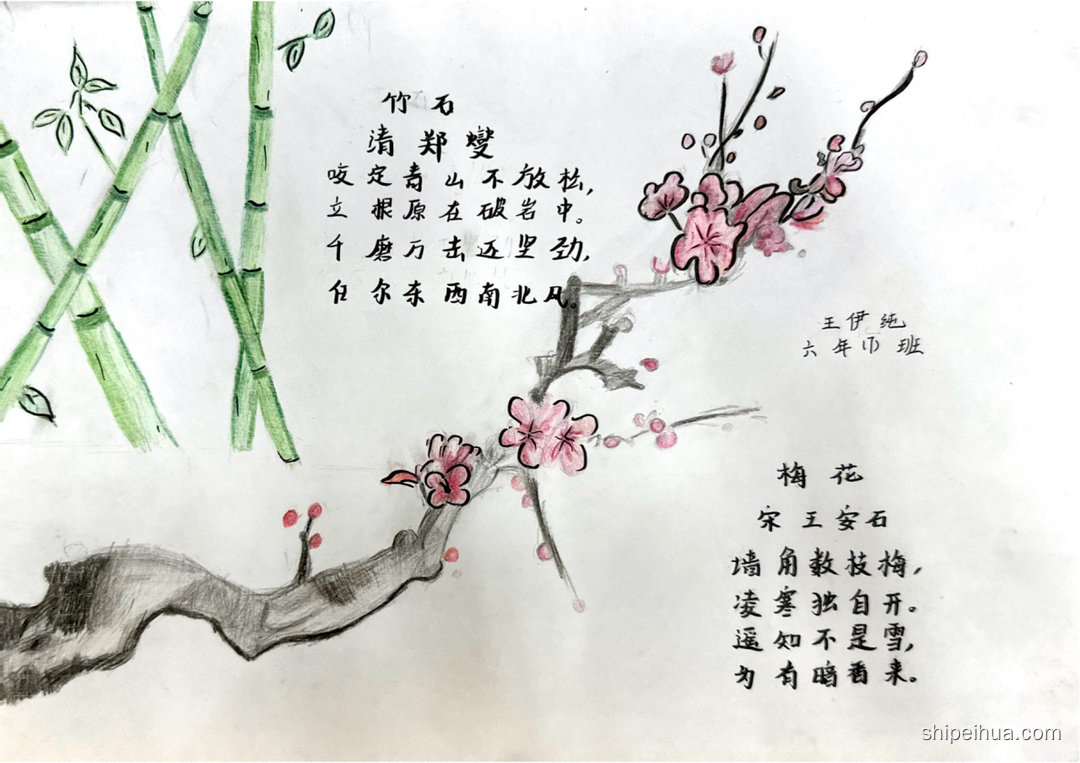 竹石
清郑燮
咬定青山不放松,
立根原在破岩中。
千磨万击还坚劲,
任尔东西南北风。
王伊纯
六年(1)班
梅花
宋王安石
墙角数枝梅,
凌寒独自开。
遥知不是雪,
为有暗香来。
shipeihua.com